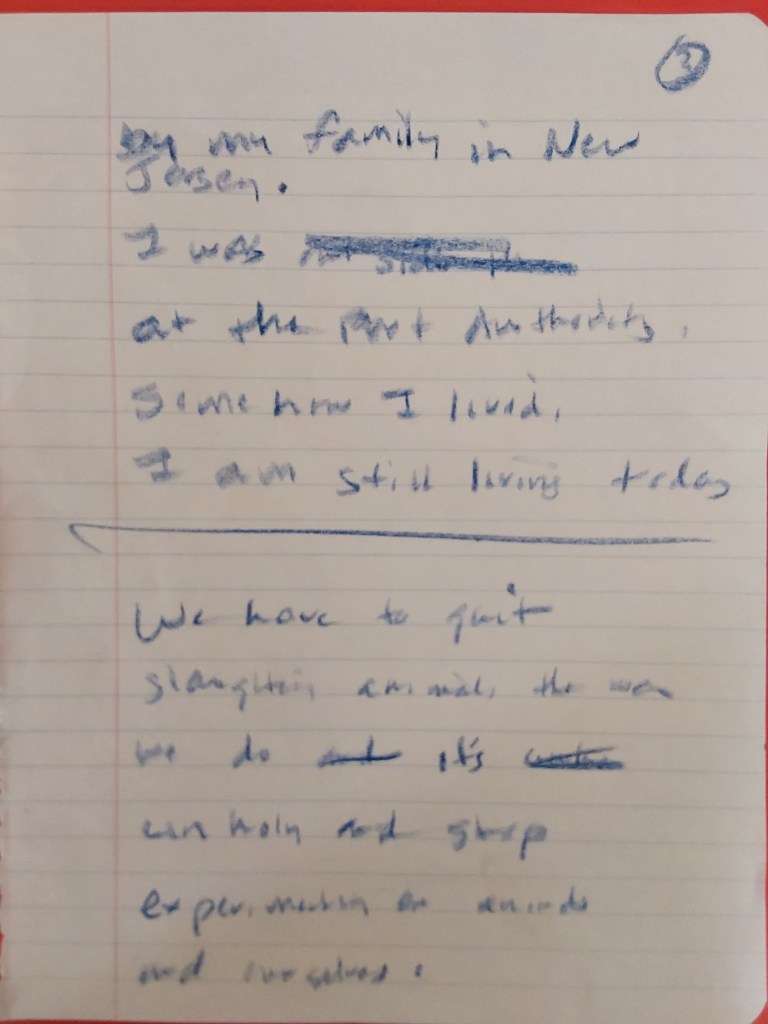 3
by my family in New
Jersey.
I was
at the Port Authority.
Somehow I lived.
I am still living today
We have to quit
slaughtering animals the way
we do and it's
unholy and stop
experimenting on animals
and ourselves.